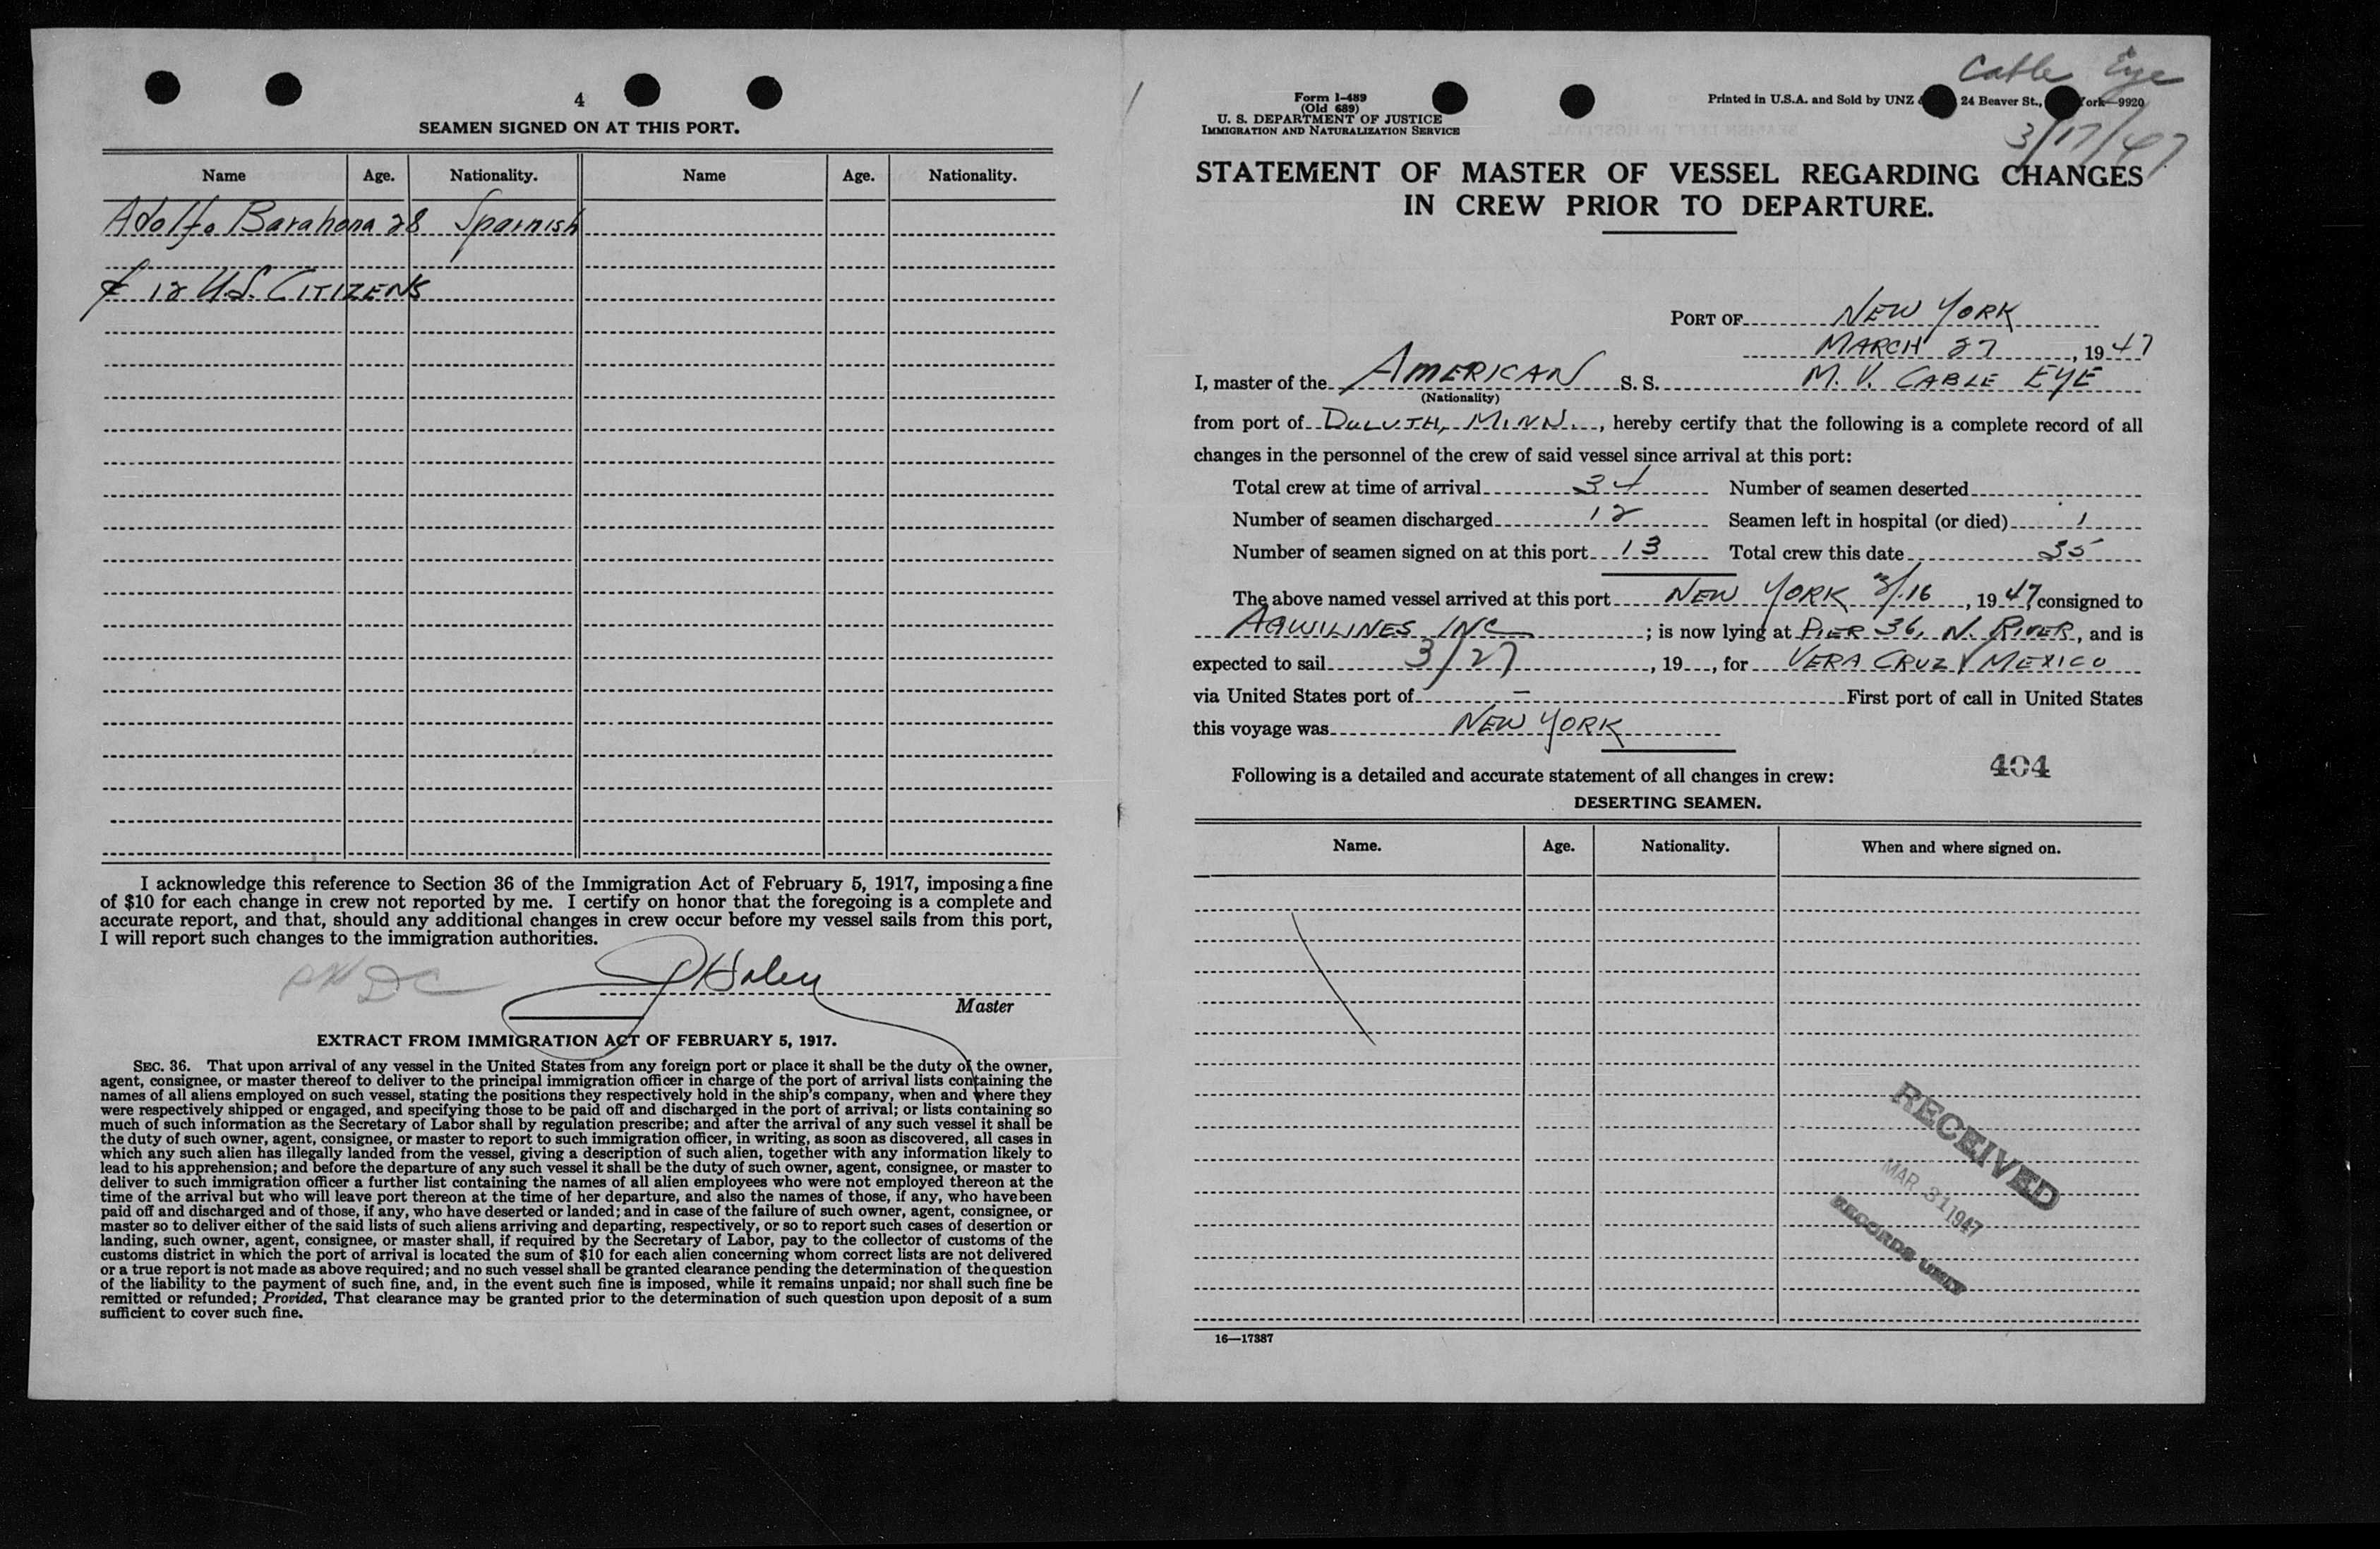 4
SEAMEN SIGNED ON AT THIS PORT.
Name Age. Nationality. Name Age. Nationality.
Adolfo Barahona 28 Spainish
& 12 U.S. CITIZENS
I acknowledge this reference to Section 36 of the Immigration Act of February 5, 1917, imposing a fine
of $10 for each change in crew not reported by me. I certify on honor that the foregoing is a complete and
accurate report, and that, should any additional changes in crew occur before my vessel sails from this port,
I will report such changes to the immigration authorities.
Master
EXTRACT FROM IMMIGRATION ACT OF FEBRUARY 5, 1917.
SEC. 36. That upon arrival of any vessel in the United States from any foreign port or place it shall be the duty of the owner,
agent, consignee, or master thereof to deliver to the principal immigration officer in charge of the port of arrival lists containing the
names of all aliens employed on such vessel, stating the positions they respectively hold in the ship's company, when and where they
were respectively shipped or engaged, and specifying those to be paid off and discharged in the port of arrival; or lists containing so
much of such information as the Secretary of Labor shall by regulation prescribe; and after the arrival of any such vessel it shall be
the duty of such owner, agent, consignee, or master to report to such immigration officer, in writing, as soon as discovered, all cases in
which any such alien has illegally landed from the vessel, giving a description of such alien, together with any information likely to
lead to his apprehension; and before the departure of any such vessel it shall be the duty of such owner, agent, consignee, or master to
deliver to such immigration officer a further list containing the names of all alien employees who were not employed thereon at the
time of the arrival but who will leave port thereon at the time of her departure, and also the names of those, if any, who have been
paid off and discharged and of those, if any, who have deserted or landed; and in case of the failure of such owner, agent, consignee, or
master so to deliver either of the said lists of such aliens arriving and departing, respectively, or so to report such cases of desertion or
landing, such owner, agent, consignee, or master shall, if required by the Secretary of Labor, pay to the collector of customs of the
customs district in which the port of arrival is located the sum of $10 for each alien concerning whom correct lists are not delivered
or a true report is not made as above required; and no such vessel shall be granted clearance pending the determination of the question
of the liability to the payment of such fine, and, in the event such fine is imposed, while it remains unpaid; nor shall such fine be
remitted or refunded; Provided, That clearance may be granted prior to the determination of such question upon deposit of a sum
sufficient to cover such fine.
Cable Eye
3/17/47
Form I-489
(Old 689)
U. S. DEPARTMENT OF JUSTICE
IMMIGRATION AND NATURALIZATION SERVICE
Printed in U.S.A. and Sold by UNZ 24 Beaver St., York—9920
STATEMENT OF MASTER OF VESSEL REGARDING CHANGES
IN CREW PRIOR TO DEPARTURE.
PORT OF NEW YORK
MARCH 27, 1947
I, master of the AMERICAN S. S. M. V. CABLE EYE
(Nationality)
from port of DULUTH, MINN., hereby certify that the following is a complete record of all
changes in the personnel of the crew of said vessel since arrival at this port:
Total crew at time of arrival 34 Number of seamen deserted
Number of seamen discharged 12 Seamen left in hospital (or died) 1
Number of seamen signed on at this port 13 Total crew this date 35
The above named vessel arrived at this port NEW YORK 3/16, 1947 consigned to
AGWILINES INC; is now lying at PIER 36, N. RIVER, and is
expected to sail 3/27, 19 , for VERA CRUZ, MEXICO
via United States port of — First port of call in United States
this voyage was NEW YORK
404
Following is a detailed and accurate statement of all changes in crew:
DESERTING SEAMEN.
Name. Age. Nationality. When and where signed on.
RECEIVED
MAR 31 1947
RECORDS UNIT
16—17387